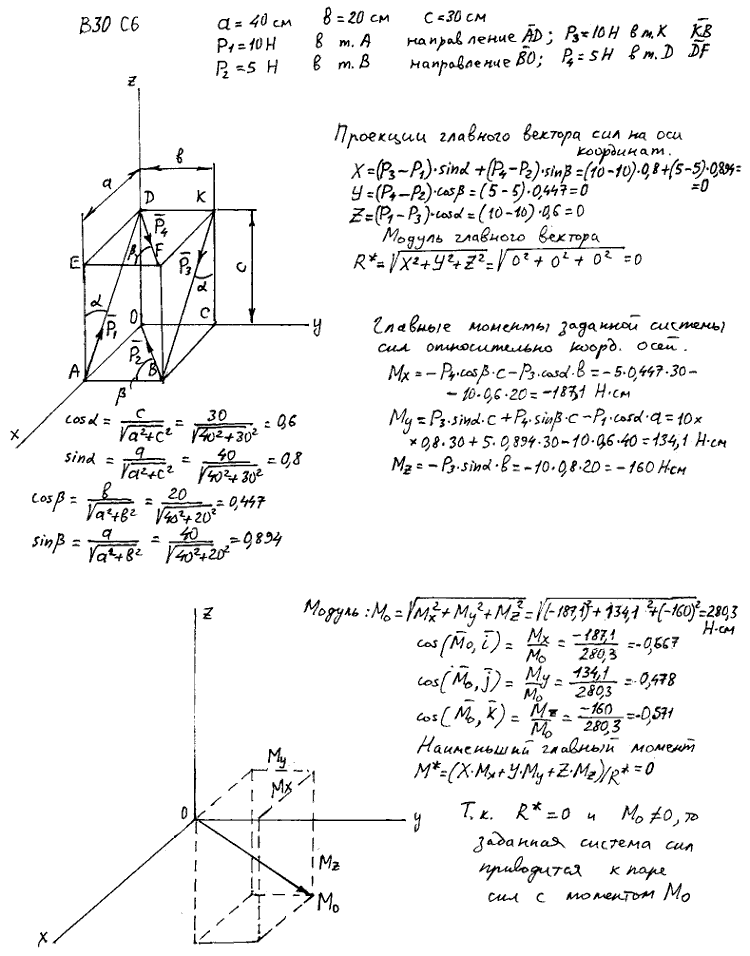 В30 С6
a = 40 см  в = 20 см  c = 30 см
P₁ = 10 Н  в т. А  направление A̅D̅; P₃ = 10 Н в т. К K̅B̅
P₂ = 5 Н  в т. В  направление B̅O̅; P₄ = 5 Н в т. D D̅F̅
Проекции главного вектора сил на оси
координат.
X = (P₃ − P₁)·sinα + (P₄ − P₂)·sinβ = (10 − 10)·0,8 + (5 − 5)·0,894 =
= 0
Y = (P₄ − P₂)·cosβ = (5 − 5)·0,447 = 0
Z = (P₁ − P₃)·cosα = (10 − 10)·0,6 = 0
Модуль главного вектора
R* = √(X² + Y² + Z²) = √(0² + 0² + 0²) = 0
z
в
a
D K
P̅₄
β F
E P̅₃
c
α α
P̅₁ O C y
P̅₂
A B
β
x
Главные моменты заданной системы
сил относительно коорд. осей.
Mx = −P₄·cosβ·c − P₃·cosα·в = −5·0,447·30 −
− 10·0,6·20 = −187,1 Н·см
My = P₃·sinα·c + P₄·sinβ·c − P₁·cosα·a = 10 ×
× 0,8·30 + 5·0,894·30 − 10·0,6·40 = 134,1 Н·см
Mz = −P₃·sinα·в = −10·0,8·20 = −160 Н·см
cosα = c/√(a² + c²) = 30/√(40² + 30²) = 0,6
sinα = a/√(a² + c²) = 40/√(40² + 30²) = 0,8
cosβ = в/√(a² + в²) = 20/√(40² + 20²) = 0,447
sinβ = a/√(a² + в²) = 40/√(40² + 20²) = 0,894
Модуль: M₀ = √(Mx² + My² + Mz²) = √((−187,1)² + 134,1² + (−160)²) = 280,3
Н·см
cos(M̅₀, i̅) = Mx/M₀ = −187,1/280,3 = −0,667
cos(M̅₀, j̅) = My/M₀ = 134,1/280,3 = 0,478
cos(M̅₀, k̅) = Mz/M₀ = −160/280,3 = −0,571
Наименьший главный момент
M* = (X·Mx + Y·My + Z·Mz)/R* = 0
Т.к. R* = 0 и M₀ ≠ 0, то
заданная система сил
приводится к паре
сил с моментом M₀
z
My
Mx
O y
Mz
M₀
x